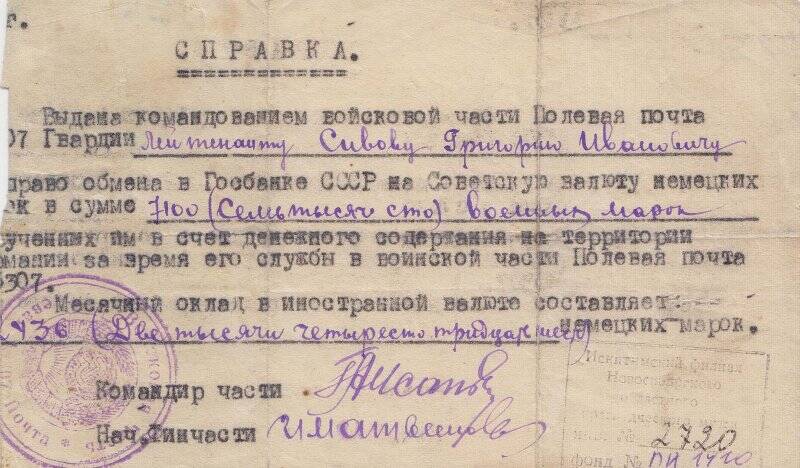 г.
СПРАВКА.
Выдана командованием войсковой части Полевая почта
07 Гвардии Лейтенанту Сивову Григорию Ивановичу
право обмена в Госбанке СССР на Советскую валюту немецких
ок в сумме 7100 (Семь тысяч сто) военных марок
ученных им в счет денежного содержания на территории
мании за время его службы в воинской части Полевая почта
6307.
Месячный оклад в иностранной валюте составляет:
2436 (Две тысячи четыресто тридцать шесть) немецких марок.
Командир части
Нач.Финчасти
Искитимский филиал
Новосибирского
областного
краеведческого
инв. № 2720
фонд №
Почта